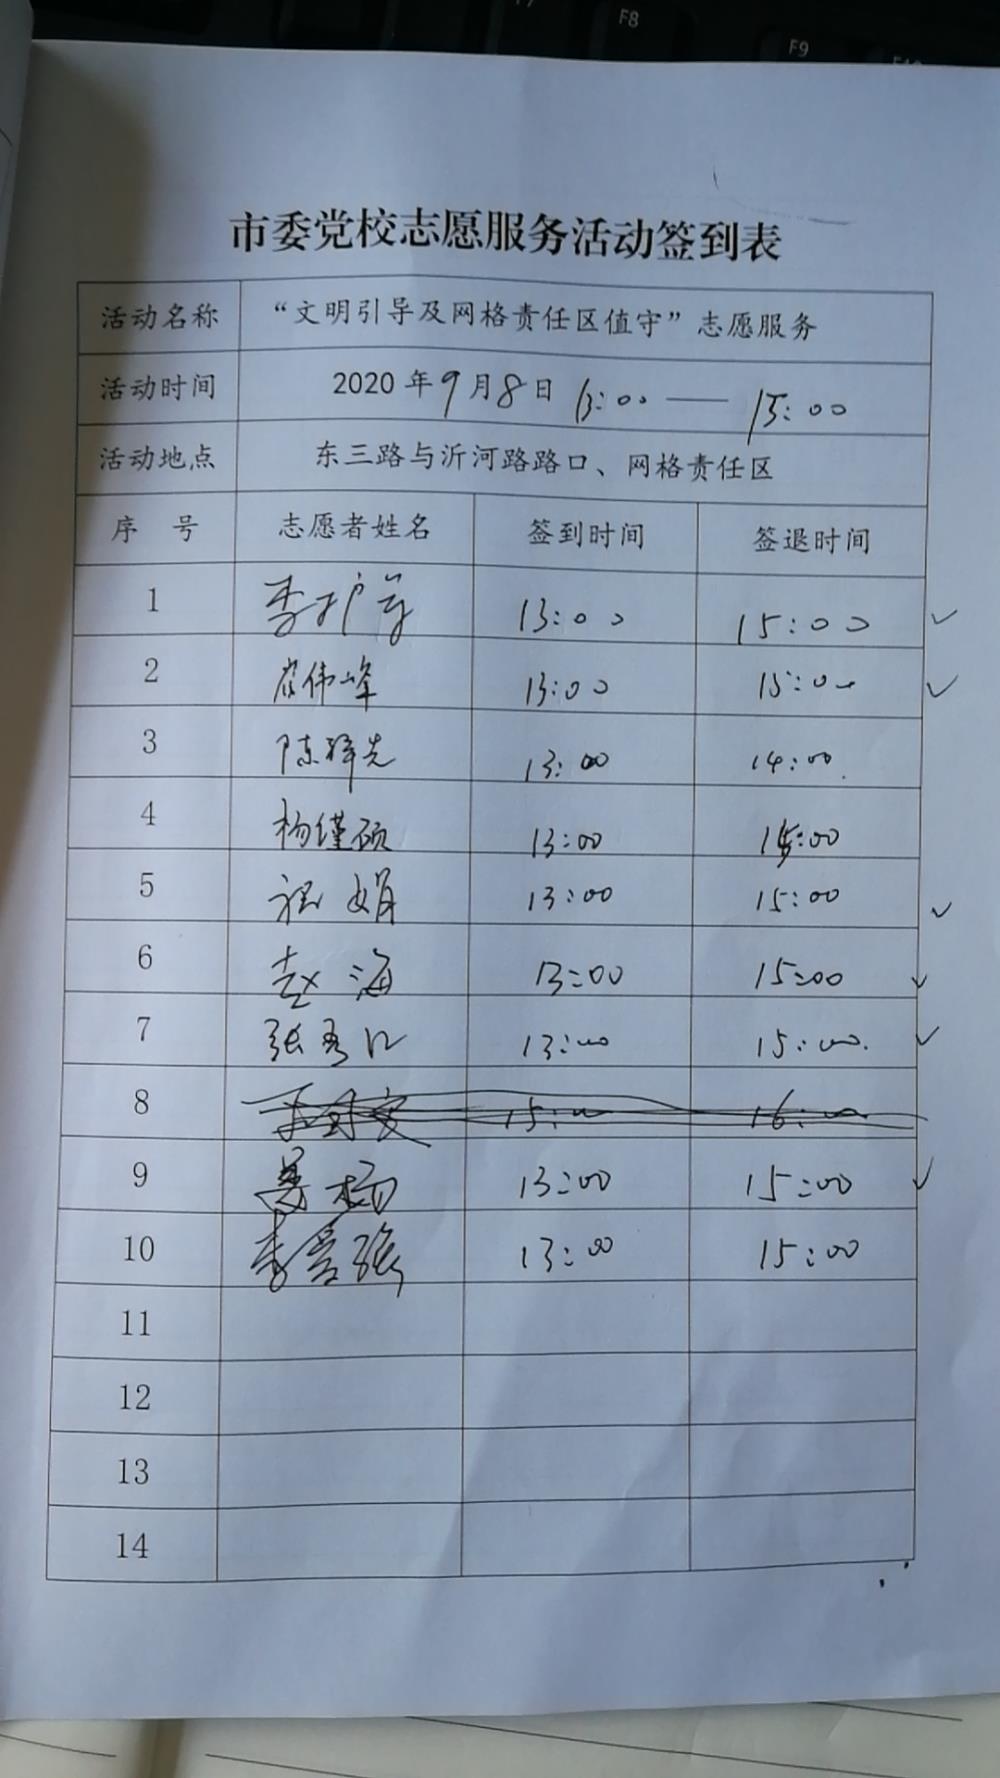 F8
F9
市委党校志愿服务活动签到表
活动名称 “文明引导及网格责任区值守”志愿服务
活动时间 2020年9月8日 13:00 —— 15:00
活动地点 东三路与沂河路路口、网格责任区
序 号 志愿者姓名 签到时间 签退时间
1 13:00 15:00
2 崔伟峰 13:00 15:00
3 13:00 14:00
4 杨瑾硕 13:00 15:00
5 娟 13:00 15:00
6 赵海 13:00 15:00
7 张 13:00 15:00
8 15:00 16:00
9 姜杨 13:00 15:00
10 李 强 13:00 15:00
11
12
13
14